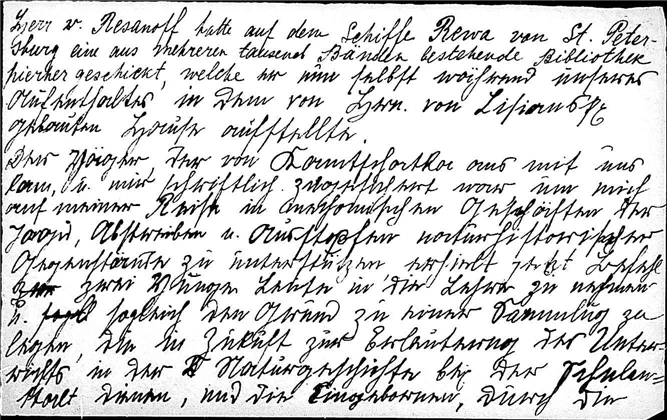 Herr v. Resanoff hatte auf dem Schiffe Rewa von St. Peter-
sburg eine aus mehreren tausend Bänden bestehende Bibliothek
hierher geschickt, welche er nun selbst während unseres
Aufenthaltes in dem von Hrn. von Lisiansky
gebauten Hause aufstellte.
Der Jäger der von Kamtschatka aus mit uns
kam, u. mir schriftlich zugesichert war um mich
auf meiner Reise in mechanischen Geschäften der
Jagd, Abstreifen u. Ausstopfen naturhistorischer
Gegenstände zu unterstützen erhielt jetzt Befehl
zwei junge Leute in die Lehre zu nehmen
u. sogleich den Grund zu einer Sammlung zu
legen, die in Zukunft zur Erläuterung des Unter-
richts in der Naturgeschichte bey der Schulan-
stalt dienen, und die Eingebornen, durch die